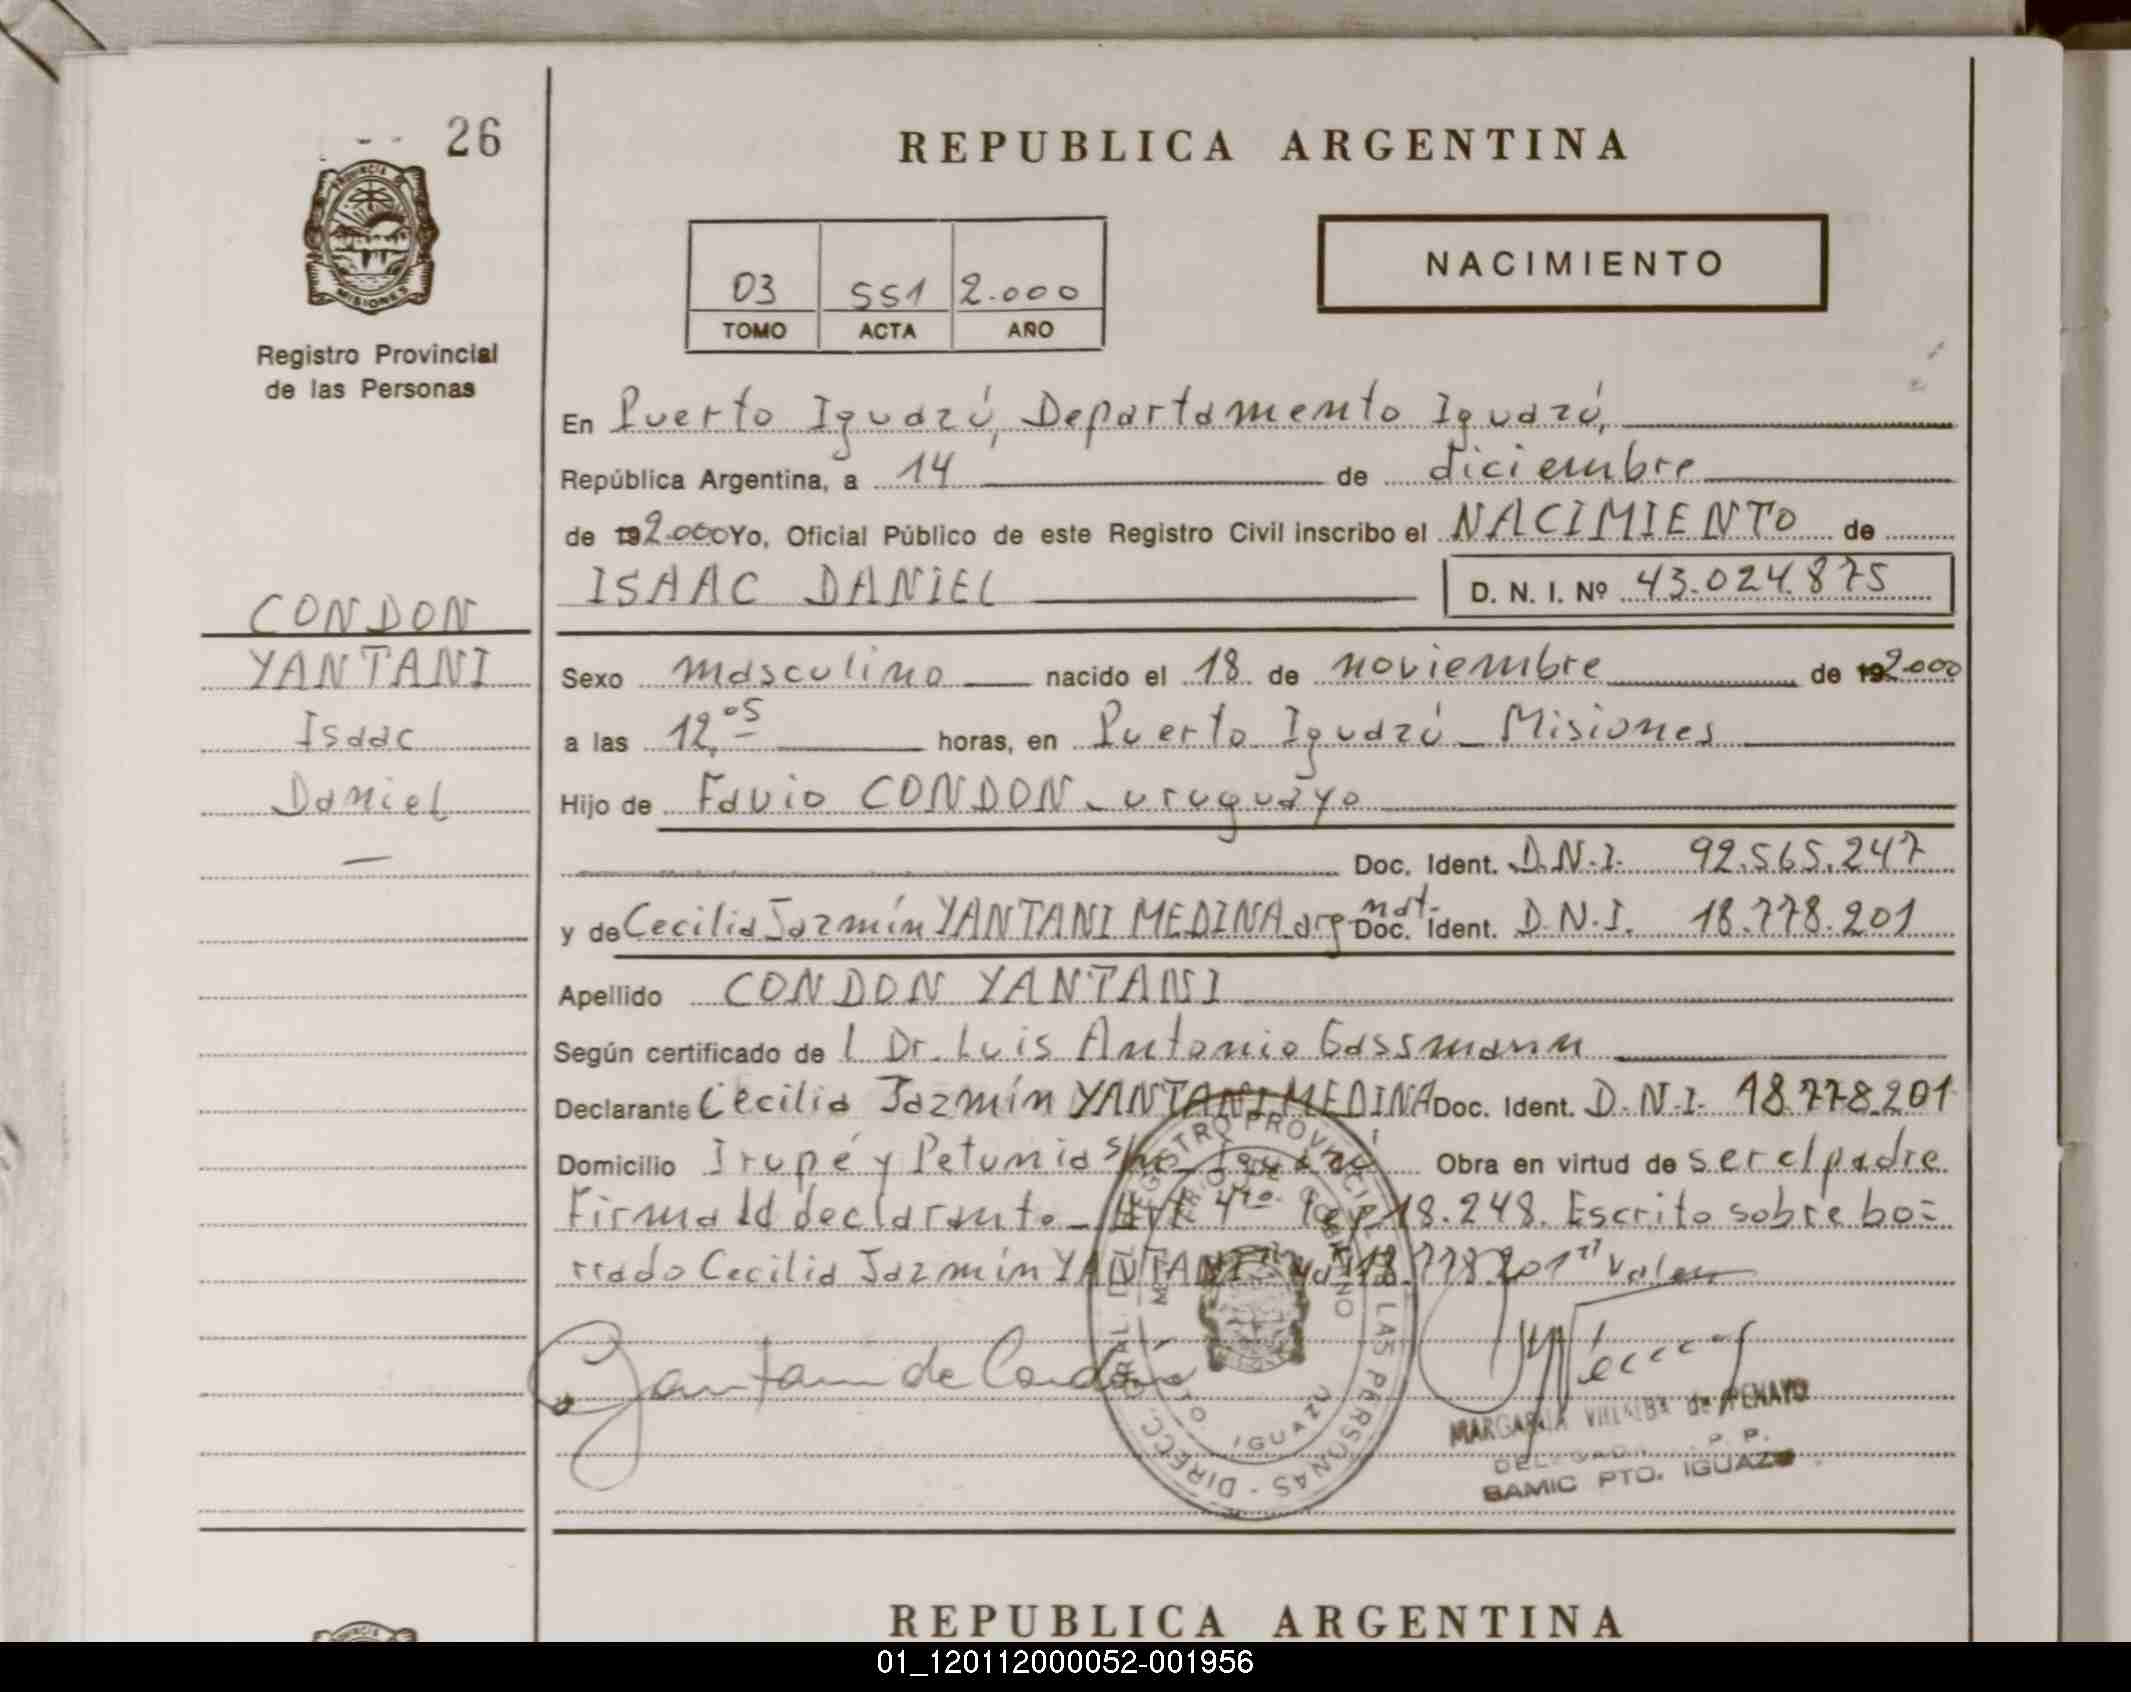 26
PROVINCIA DE
MISIONES
Registro Provincial
de las Personas
CONDON
YANTANI
Isaac
Daniel
REPUBLICA ARGENTINA
03 551 2.000
TOMO ACTA AÑO
NACIMIENTO
En Puerto Iguazú, Departamento Iguazú,
República Argentina, a 14 de diciembre
de 192.000 Yo, Oficial Público de este Registro Civil inscribo el NACIMIENTO de
ISAAC DANIEL D. N. I. Nº 43.024.875
Sexo masculino nacido el 18 de noviembre de 192000
a las 12,05 horas, en Puerto Iguazú - Misiones
Hijo de Favio CONDON - uruguayo
Doc. Ident. D.N.I. 92.565.247
y de Cecilia Jazmín YANTANI MEDINA - arg nat. Doc. Ident. D.N.I. 18.778.201
Apellido CONDON YANTANI
Según certificado de l Dr. Luis Antonio Gassmann
Declarante Cecilia Jazmín YANTANI MEDINA Doc. Ident. D.N.I. 18.778.201
Domicilio Irupé y Petunia s/nº Iguazú Obra en virtud de ser el padre
Firma la declarante - Art 4to. Ley 18.248. Escrito sobre bo=
rrado Cecilia Jazmín YANTANI 18.778.201" valen
Yantani de Condon
REGISTRO PROVINCIAL DE LAS PERSONAS - DIRECC. GRAL DEL
GOBIERNO
IGUAZU
MARGARITA VILLALBA de PENAYO
SAMIC PTO. IGUAZU
REPUBLICA ARGENTINA
01_120112000052-001956